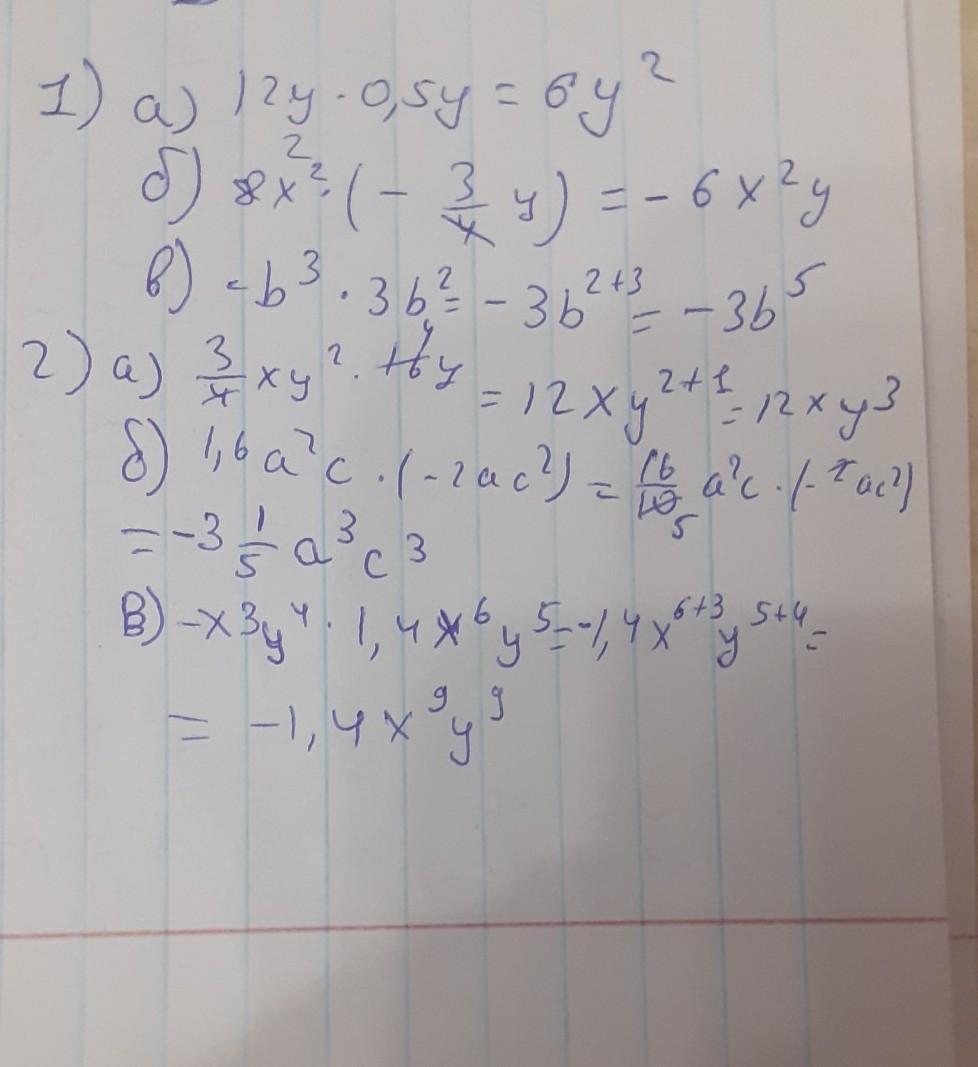 1) а) 12y · 0,5y = 6y²
б) 8x² · (- 3/4 y) = - 6x²y
в) -b³ · 3b² = - 3b²⁺³ = - 3b⁵
2) а) 3/4 xy² · 16y = 12xy²⁺¹ = 12xy³
б) 1,6a²c · (-2ac²) = 16/10 a²c · (-2ac²)
= -3 1/5 a³c³
В) -x3y⁴ · 1,4x⁶y⁵ = -1,4x⁶⁺³y⁵⁺⁴ =
= -1,4x⁹y⁹